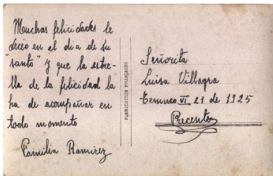 Muchas felicidades le
deseo en el dia de su
"santo" y que la estre-
lla de la felicidad la
ha de acompañar en
todo momento
Familia Ramirez
Señorita
Luisa Villagra
Temuco VI. 21 de 1925
Presente